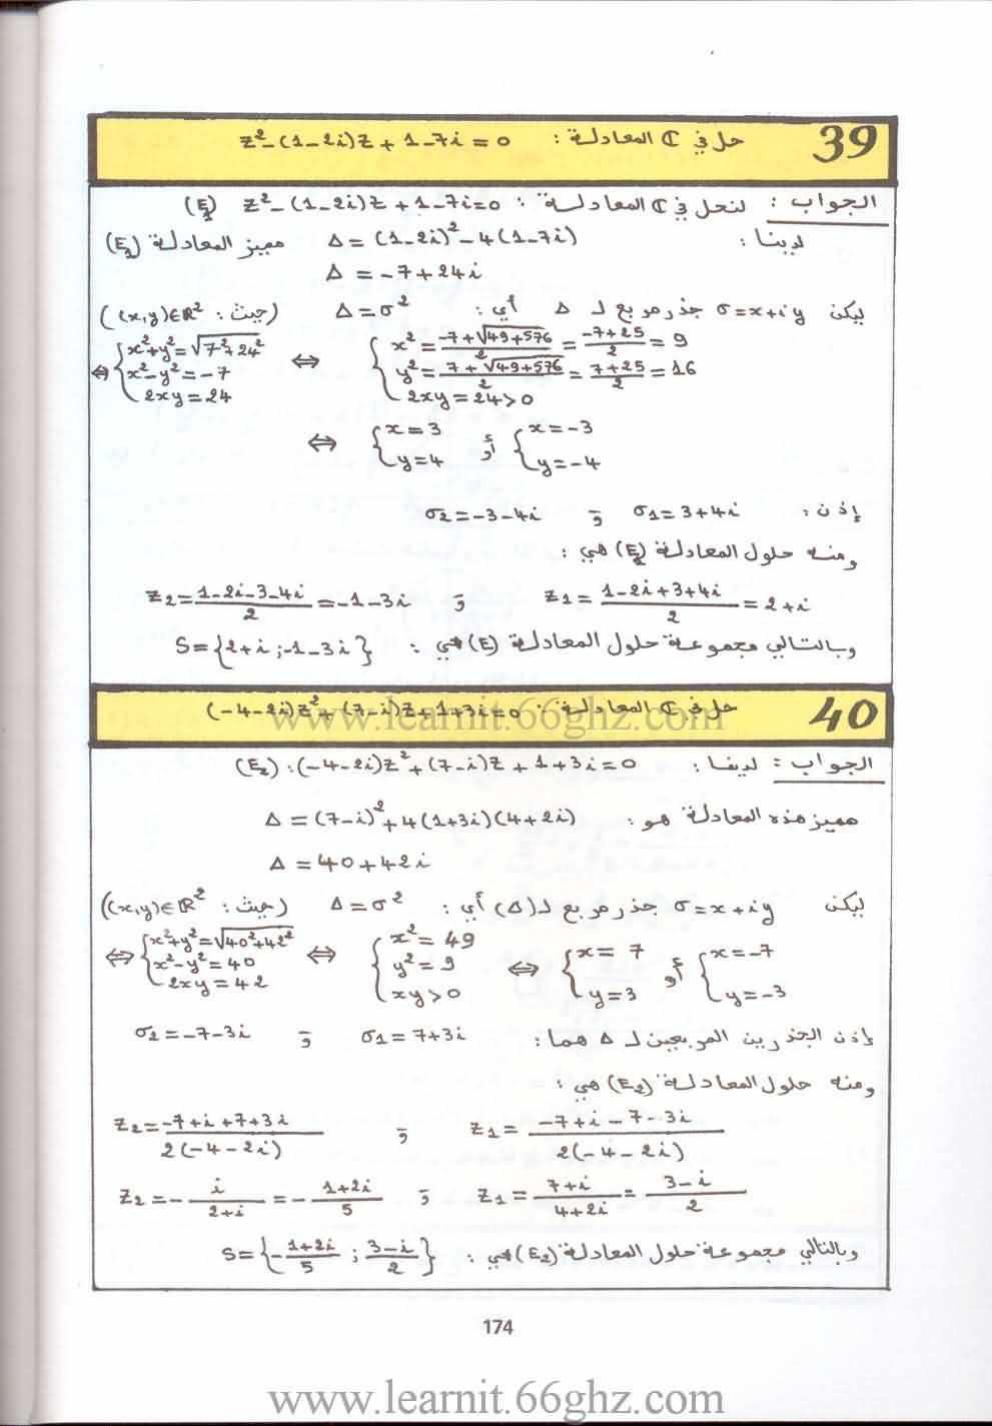 39 حل في ℂ المعادلة : z²-(1-2i)z+1-7i=0
الجواب : لنحل في ℂ المعادلة : z²-(1-2i)z+1-7i=0 (E₁)
لدينا : Δ=(1-2i)²-4(1-7i) مميز المعادلة (E₁)
Δ=-7+24i
ليكن σ=x+iy جذر مربع لـ Δ أي : Δ=σ² (حيث : (x,y)∈ℝ²)
⇔ {x²+y²=√7²+24² ; x²-y²=-7 ; 2xy=24 ⇔ {x²=(-7+√49+576)/2=(-7+25)/2=9 ; y²=(7+√49+576)/2=(7+25)/2=16 ; 2xy=24>0
⇔ {x=3 ; y=4 أو {x=-3 ; y=-4
إذن : σ₁=3+4i و σ₂=-3-4i
ومنه حلول المعادلة (E₁) هي :
z₁=(1-2i+3+4i)/2=2+i و z₂=(1-2i-3-4i)/2=-1-3i
وبالتالي مجموعة حلول المعادلة (E) هي : S={2+i ;-1-3i}
40 حل في ℂ المعادلة : (-4-2i)z²+(7-i)z+1+3i=0
www.learnit.66ghz.com
الجواب : لدينا : (E₂) : (-4-2i)z²+(7-i)z+1+3i=0
مميز هذه المعادلة هو : Δ=(7-i)²+4(1+3i)(4+2i)
Δ=40+42i
ليكن σ=x+iy جذر مربع لـ(Δ) أي : Δ=σ² (حيث : (x,y)∈ℝ²)
⇔ {x²+y²=√40²+42² ; x²-y²=40 ; 2xy=42 ⇔ {x²=49 ; y²=9 ; xy>0 ⇔ {x=7 ; y=3 أو {x=-7 ; y=-3
إذن الجذرين المربعين لـ Δ هما : σ₁=7+3i و σ₂=-7-3i
ومنه حلول المعادلة (E₂) هي :
z₁=(-7+i-7-3i)/2(-4-2i) و z₂=(-7+i+7+3i)/2(-4-2i)
z₁=(7+i)/(4+2i)=(3-i)/2 و z₂=-i/(2+i)=-(1+2i)/5
وبالتالي مجموعة حلول المعادلة (E₂) هي : S={-(1+2i)/5 ; (3-i)/2}
174
www.learnit.66ghz.com